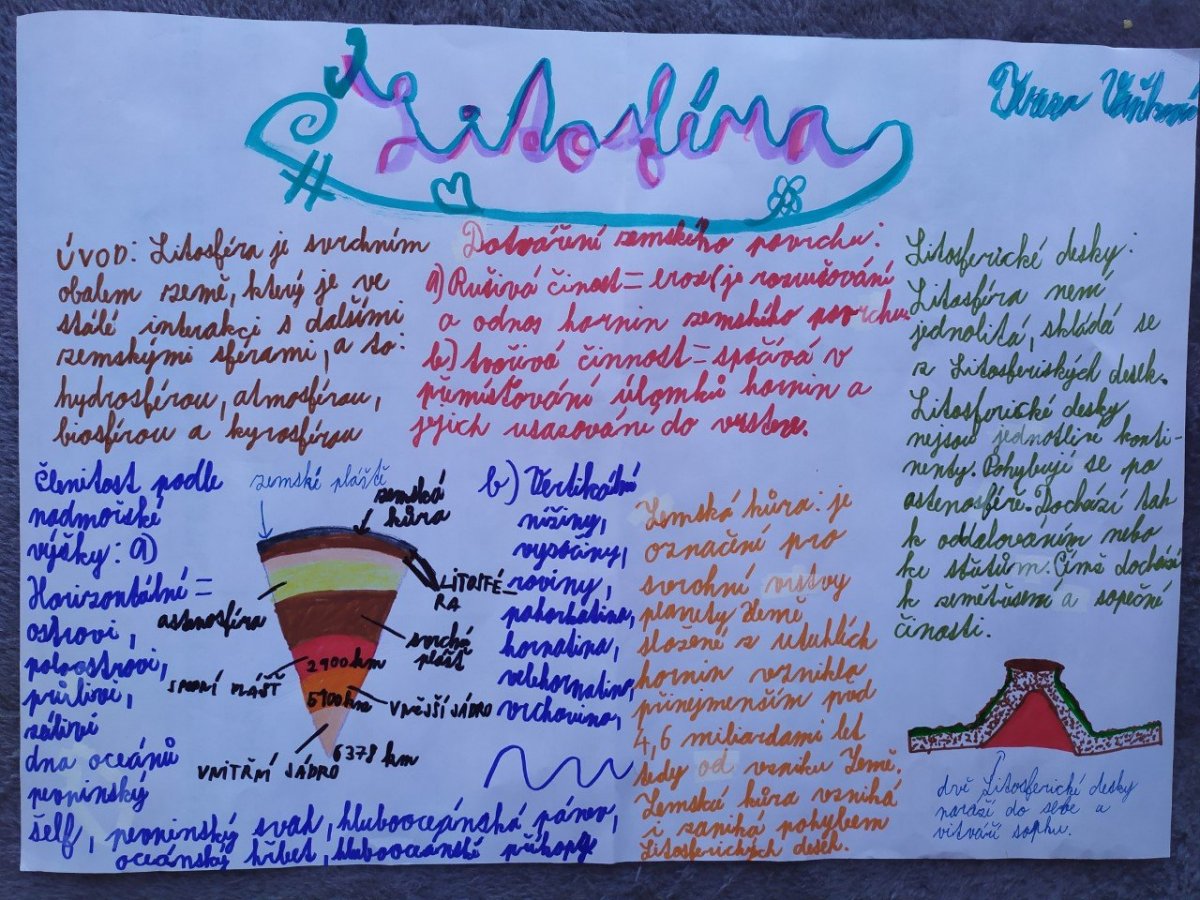 Litosféra
Tereza Vaňková
ÚVOD: Litosféra je svrchním
obalem země, který je ve
stálé interakci s dalšími
zemskými sférami, a to:
hydrosférou, atmosférou,
biosférou a kyrosférou
Dotváření zemského povrchu:
a) Rušivá činost = eroze (je rozrušování
a odnos hornin zemského povrchu.
b) tvořivá činnost = spočívá v
přemísťování úlomků hornin a
jejich usazování do vrstev.
Litosferické desky:
Litosféra není
jednolitá, skládá se
z Litosferiských desek.
Litosferické desky
nejsou jednotlivé konti-
nenty. Pohybují se po
astenosféře. Dochází tak
k oddalováním nebo
ke střetům. Čímž dochází
k zemětřesení a sopečné
činosti.
Členitost podle
nadmořské
výšky: a)
Horizontálné =
ostrovi,
poloostrovi,
průlivi,
zálivi
dna oceánů
pevninský
šelf, pevninský svah, hlubooceánská pánev,
oceánský hřbet, hlubooceánské příkopy
zemské pláště
zemská
kůra
LITOSFÉ-
RA
astenosféra
svrchí
plášť
2900 km
SPODNÍ PLÁŠŤ
5100 km
VNĚJŠÍ JÁDRO
6378 km
VNITŘNÍ JÁDRO
b) Vertikální
nížiny,
vysočiny,
roviny,
pahorkatina,
hornatina,
velehornatina,
vrchovina,
Zemská kůra: je
označení pro
svrchní vrstvy
planety Země
složené z utuhlích
hornin vznikla
přinejmenším pod
4,6 miliardami let
tedy od vzniku Země.
Zemská kůra vzniká
i zaniká pohybem
Litosferických desek.
dvě Litosferické desky
narazí do sebe a
vitváří sopku.